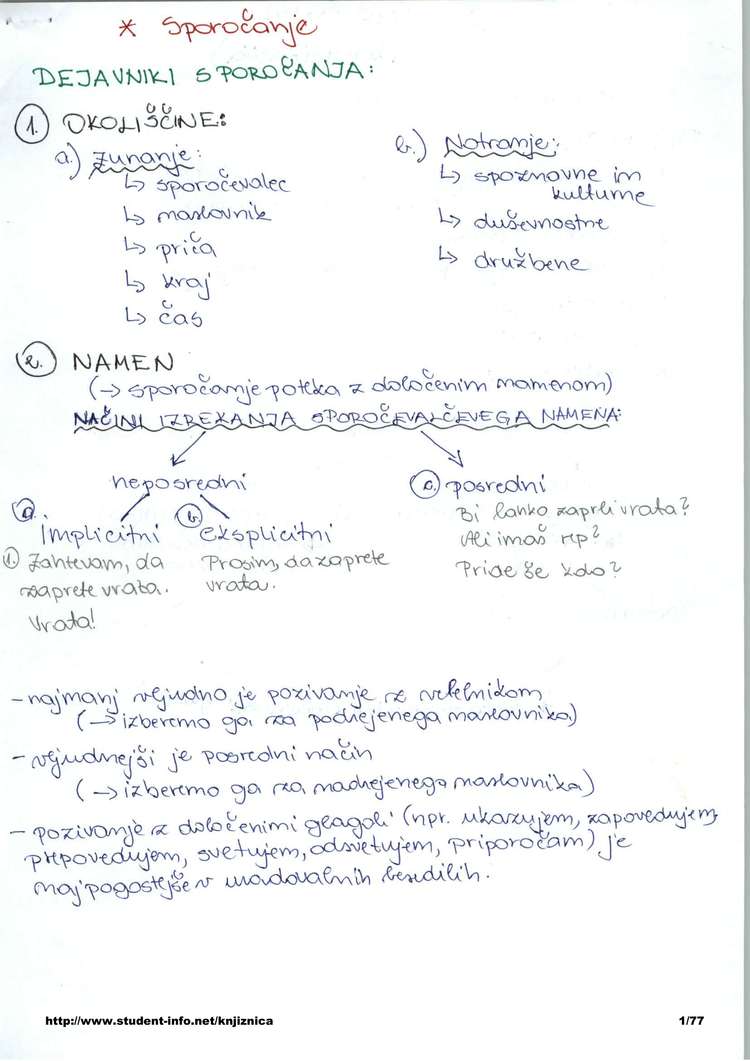 * Sporočanje
DEJAVNIKI SPOROČANJA:
1. OKOLIŠČINE:
a.) zunanje:
↳ sporočevalec
↳ naslovnik
↳ priča
↳ kraj
↳ čas
b.) Notranje:
↳ spoznovne in
kulturne
↳ duševnostne
↳ družbene
2. NAMEN
(→ sporočanje poteka z določenim namenom)
NAČINI IZREKANJA SPOROČEVALČEVEGA NAMENA:
neposredni
c. posredni
a. implicitni
b. eksplicitni
Bi lahko zaprli vrata?
Ali imaš
Pride še kdo?
1. Zahtevam, da
zaprete vrata.
Vrata!
Prosim, da zaprete
vrata.
- najmanj vljudno je pozivanje z velelnikom
(→ izberemo ga za podrejenega naslovnika)
- vljudnejši je posredni način
(→ izberemo ga za nadrejenega naslovnika)
- pozivanje z določenimi glagoli (npr. ukazujem, zapovedujem,
prepovedujem, svetujem, odsvetujem, priporočam) je
najpogostejše v uradovalnih besedilih.
http://www.student-info.net/knjiznica
1/77